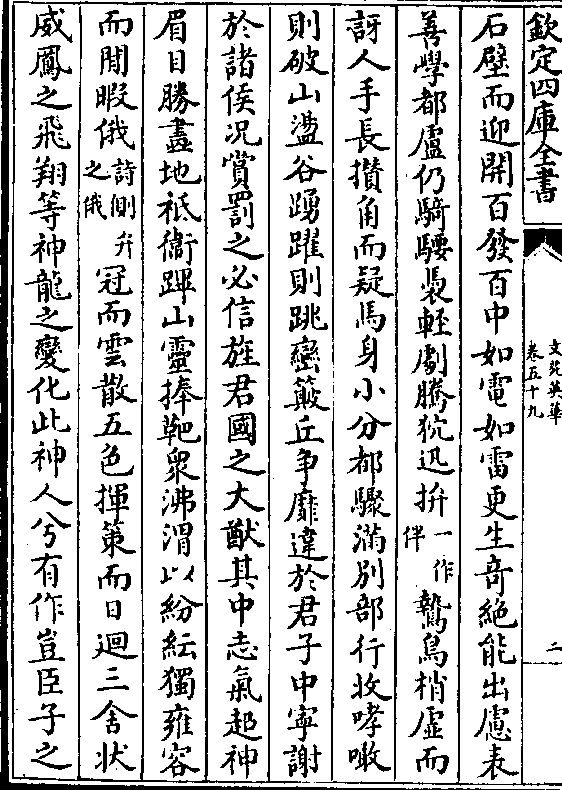 欽定四庫全書
文苑英華
卷五十九
二
石壁而迎開百發百中如電如雷更生竒絶能出慮表
善學都盧仍騎騕褭輕劇騰狖迅拚一作伴鷙鳥梢虛而
訝人手長攢角而疑馬身小分都驟滿別部行收哮噉
則破山盪谷踴躍則跳巒簸丘争靡違於君子中寧謝
於諸侯况賞罰之必信旌君國之大猷其中志氣超神
眉目勝畫地祇衞蹕山靈捧靶衆沸渭以紛紜獨雍容
而閒暇俄詩側弁之俄冠而雲散五色揮策而日迴三舍狀
威鳳之飛翔等神龍之變化此神人兮有作豈臣子之